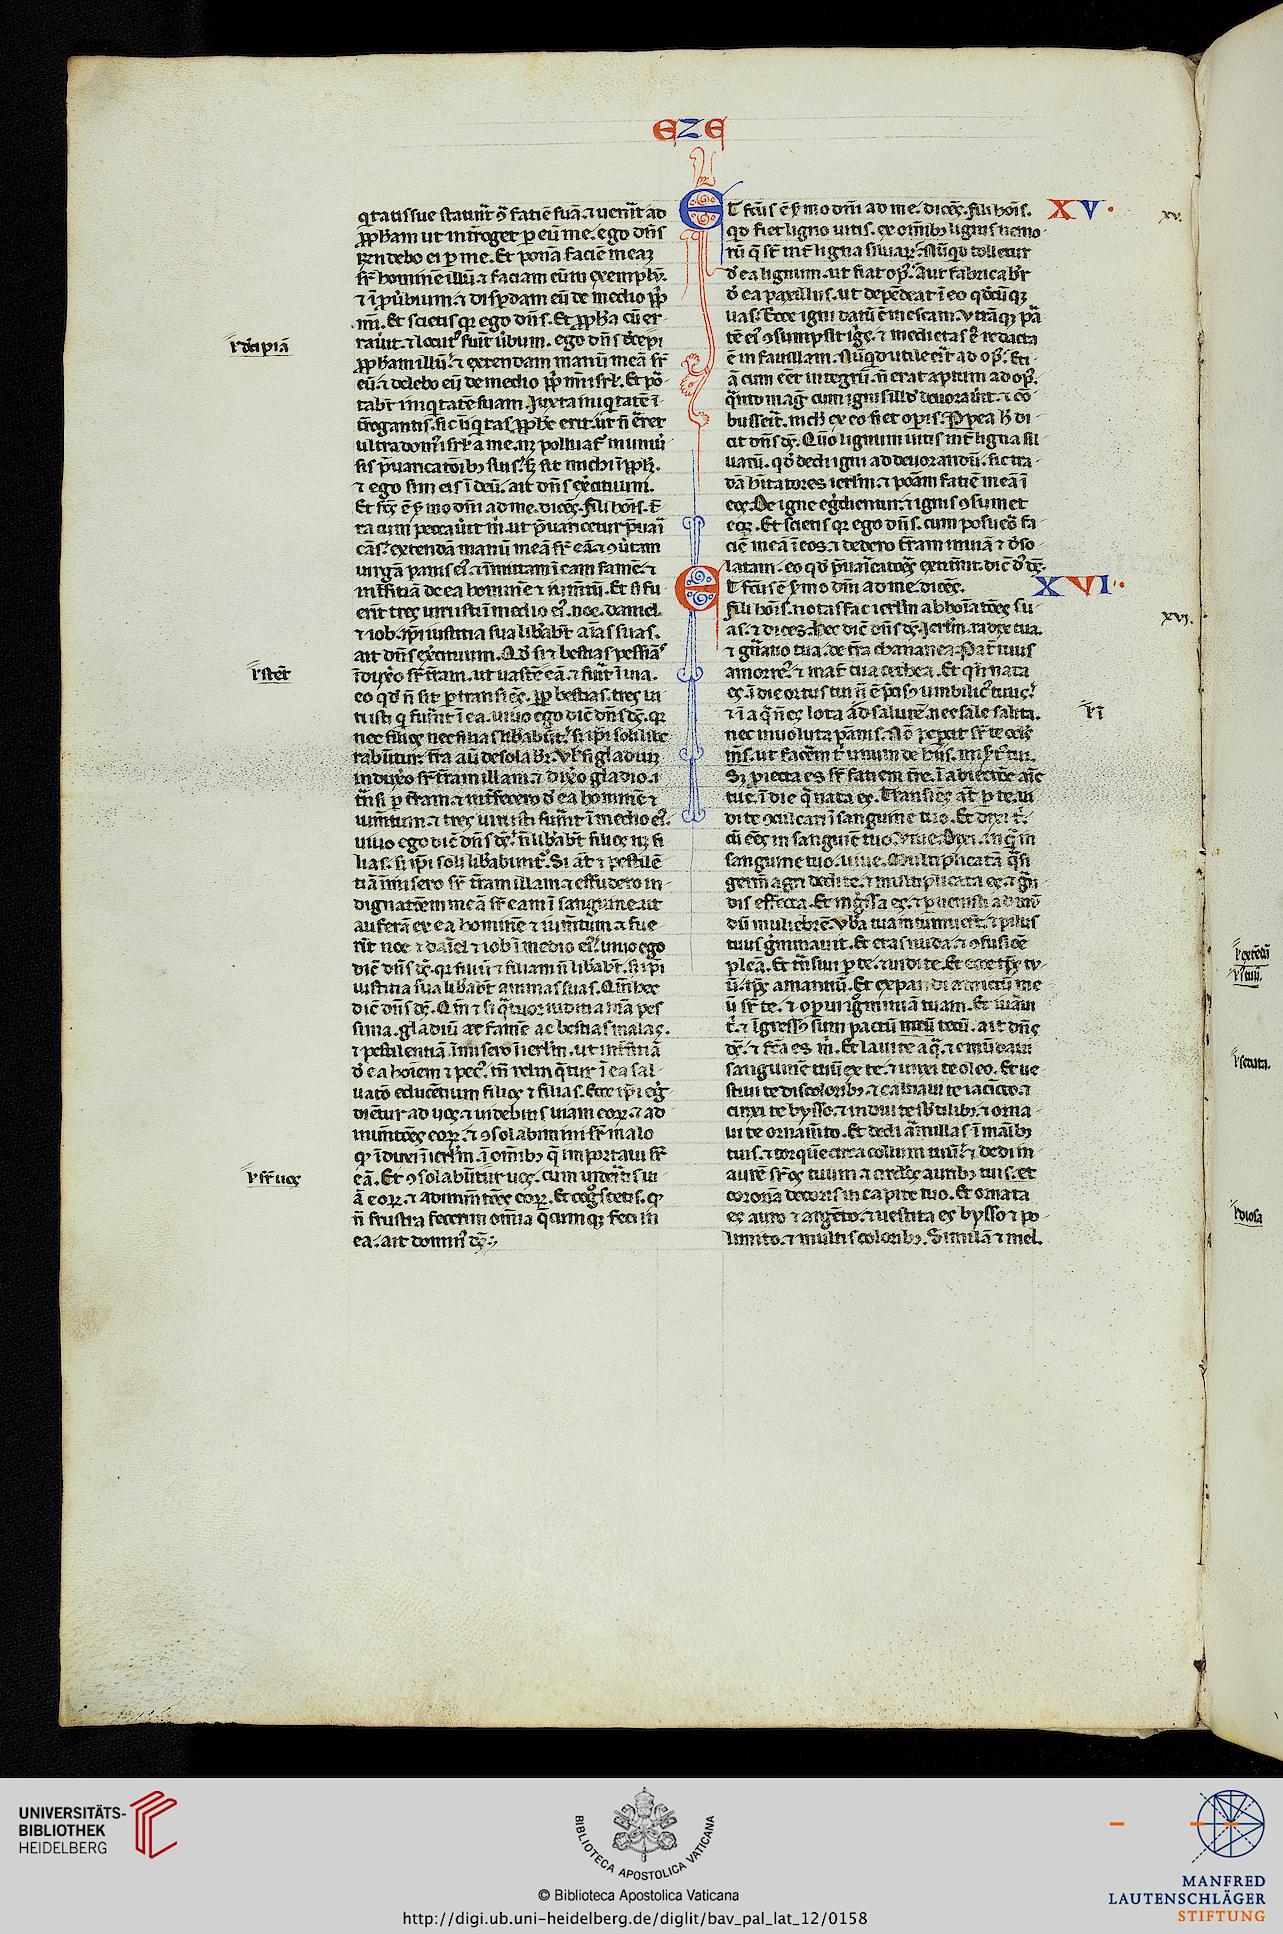 EZE
q̃tatis sue statuit ꝯ̃ faciē suā. ⁊ uen̾it ad
ꝓph̃am ut int̾roget ꝑ eū me. ego dn̄s
rñdebo ei ꝑ me. Et ponā faciē meaꝫ
sr̄ hominē illū. ⁊ faciam eūm exemplū.
⁊ ī ꝓu̾bium. ⁊ disꝑdam eū de medio ppl̄i
mī. Et scietis qꝛ ego dn̄s. Et ꝓph̃a cū er
rau̾it. ⁊ locut᾽ fuīt u̾bum. ego dn̄s decepi
ꝓph̃am illū. ⁊ extendam manū meā sr̄
eū. ⁊ delebo eū de medio ppl̄i mī isrl̄. Et por
tab̄t iniq̃tatē suam. Juxta iniq̃tatē ī
t̾rogantis. sic īiq̃tas ꝓph̃e erit. ut ñ erret
ultra dom᾽ isrl̄ a me. neꝫ polluat᾽ in uniu̾
sis p̃uaricatōibꝫ suis. sꝫ sit michi ī ppl̄m.
⁊ ego sim eis ī deū. ait dn̄s exercituum.
Et fc̄s ē s̾mo dn̄i ad me. dicēs. Fili hoīs. t̄
ra cum peccau̾it m̄. ut p̃uaricetur p̃uari
cās. extendā manū meā sr̄ eā. ⁊ ꝯt̾am
uirgā panis ei᾽. ⁊ īmittam ī eam famē. ⁊
int̾ficiā de ea hominē ⁊ ium̄tū. Et si fu
erīt tres uiri isti ī medio ei᾽. noe. daniel.
⁊ iob. ip̄i iusticia sua lib̾ab̄t aīas suas.
ait dn̄s exercituum. Qd̾ si ⁊ bestias pessīas
īdux̾o sr̄ t̾ram. ut uastē eā. ⁊ fu̾it īuia.
eo qd̾ ñ sit ꝑtransiēs. ꝓp bestias. tres ui
ri isti q̄ fu̾int ī ea. uiuo ego dic̄ dn̄s ds̄. qꝛ
nec filios nec filias lib̾abūt. sꝫ ip̄i soli libe
rabūtur. t̾ra au̾ desolab̾r. Ul̾ si gladiuꝫ
indux̾o sr̄ t̾ram illam. ⁊ dix̾o gladio. ⁊
t̃nsi ꝑ t̾ram. ⁊ int̾fecero d̾ ea hominē ⁊
ium̄tum. ⁊ tres uiri isti fu̾int ī medio ei᾽.
uiuo ego dic̄ dn̄s ds̄. ñ lib̾ab̄t filios neꝫ fi
lias. sꝫ ip̄i soli lib̾abunt᾽. Si āt ⁊ pestilē
tiā īmisero sr̄ t̾ram illam. ⁊ effudero in
dignatōem meā sr̄ eam ī sanguine. ut
auferā ex ea hominē ⁊ ium̄tum. ⁊ fue
rīt noe ⁊ daniel ⁊ iob ī medio ei᾽. uiuo ego
dic̄ dn̄s ds̄. qꝛ filiū ⁊ filiam ñ lib̾ab̄t. sꝫ ip̄i
iusticia sua lib̾ab̄t animas suas. Qm̄ hec
dic̄ dn̄s ds̄. Qm̄ ⁊ si q̃tuor iudicia mā pes
sima. gladiū ⁊ famē ac bestias malas.
⁊ pestilentiā īmisero ī ierl̄m. ut int̾ficiā
d̾ ea hoīem ⁊ pec᾽. tm̄ relinq̃tur ī ea sal
uatō educētium filios ⁊ filias. Ecce ip̄i eg̾
diētur ad uos. ⁊ uidebitis uiam eoꝝ. ⁊ ad
inuētiōes eoꝝ. ⁊ ꝯsolabimini sr̄ malo
qd̾ īduxi ī ierl̄m. ī omībꝫ q̄ importaui sr̄
eā. Et ꝯsolabūtur uos. cum uideritis ui
ā eoꝝ. ⁊ adinuētiōes eoꝝ. Et cog̾scetis. qd̾
ñ frustra fecerim om̄ia q̄cumqꝫ feci in
ea. ait domin᾽ ds̄.
ET fc̄us ē s̾mo dn̄i ad me. dicēs. Fili hoīs.
XV.
qd̾ fiet ligno uitis. ex omībꝫ lignis nemo
rū q̄ st̄ int̾ ligna siluaꝝ. Nūqd̾ tolletur
d̾ ea lignum. ut fiat op᾽. Aut fabricab̾r
d̾ ea paxillus. ut depēdeat ī eo qd̾cūqꝫ
uas. Ecce igni datū ē in escam. utrāqꝫ par
tē ei᾽ ꝯsumpsit ignis. ⁊ medietas ei᾽ redacta
ē in fauillam. Nūqd̾ utile erit ad op᾽. Eti
ā cum eēt integrū. ñ erat aptum ad op᾽.
q̃nto mag᾽ cum ignis illd̾ deuorau̾it. ⁊ cō
busserit. nich̾ ex eo fiet opis. Ppea h̾ di
cit dn̄s ds̄. Quō lignum uitis int̾ ligna sil
uarū. qd̾ dedi igni ad deuorandū. sic tra
dā hitatores ierl̄m. ⁊ ponam faciē meā ī
eos. De igne eg̾dientur. ⁊ ignis ꝯsumet
eos. Et scietis qꝛ ego dn̄s. cum posuero fa
ciē meā ī eos. ⁊ dedero t̾ram inuiā ⁊ d̾so
latam. eo qd̾ p̃uaricatōes extit̾int. dic̄ dn̄s ds̄.
ET fc̄us ē s̾mo dn̄i ad me. dicēs.
XVI.
Fili hoīs. notas fac ierl̄m abhoīatōes su
as. ⁊ dices. Hec dic̄ dn̄s ds̄. Ierl̄m. radix tua.
⁊ gn̄atio tua. de t̾ra chananea. Pat̾ tuus
amorre᾽. ⁊ mat̾ tua cethea. Et qn̄ nata
es. ī die ortus tui ñ ē p̃cis᾽ umbilic᾽ tuus.
⁊ ī aq̃ ñ es lota ad salutē. nec sale salita.
nec inuoluta pānis. Nō peꝑcit sr̄ te ocl̄s
mīs. ut facēm t᾽ unum de hiis. mis̾t᾽ tui.
Sꝫ ꝓiecta es sr̄ faciem t̾re. ī abiectōe aīe
tue. ī die q̃ nata es. Transiēs āt ꝑ te. ui
di te ꝯculcari ī sanguine tuo. Et dixi t᾽.
cū eēs in sanguine tuo. uiue. Dixi inq̃m
sanguine tuo. uiue. Multiplicatā q̃si
germē agri dedi te. ⁊ multiplicata es. ⁊ g̃n
dis effecta. Et ing̾ssa es. ⁊ ꝑuenisti ad mū
dū muliebrē. Ub̾a tua intumuer̄t. ⁊ pilus
tuus g̾minauit. Et eras nuda. ⁊ ꝯfusiōe
plea. Et t̃nsiui ꝑ te. ⁊ uidi te. Et ecce tp̄s tu
ū. tp̄s amantiū. Et expandi amictū me
ū sr̄ te. ⁊ oꝑui ignominiā tuam. Et iuraui
t᾽. ⁊ ig̾ssus sum pactū mecū tecū. ait dn̄s
ds̄. ⁊ fc̄a es m̄. Et laui te aq̃. ⁊ emūdaui
sanguinē tuū ex te. ⁊ unxi te oleo. Et ue
stiui te discoloribꝫ. ⁊ calciaui te iacincto. ⁊
cinxi te bysso. ⁊ indui te sb̾tilibꝫ. ⁊ orna
ui te ornam̄to. Et dedi armillas ī manibꝫ
tuis. ⁊ torquē circa collum tuū. ⁊ dedi in
aurē sr̄ os tuum. ⁊ circl̄os auribꝫ tuis. et
coronā decoris in capite tuo. Et ornata
es auro ⁊ argēto. ⁊ uestita es bysso ⁊ po
limito. ⁊ multis coloribꝫ. Similā ⁊ mel.
xv.
xvj.
UNIVERSITÄTS-
BIBLIOTHEK
HEIDELBERG
BIBLIOTECA APOSTOLICA VATICANA
© Biblioteca Apostolica Vaticana
http://digi.ub.uni-heidelberg.de/diglit/bav_pal_lat_12/0158
MANFRED
LAUTENSCHLÄGER
STIFTUNG